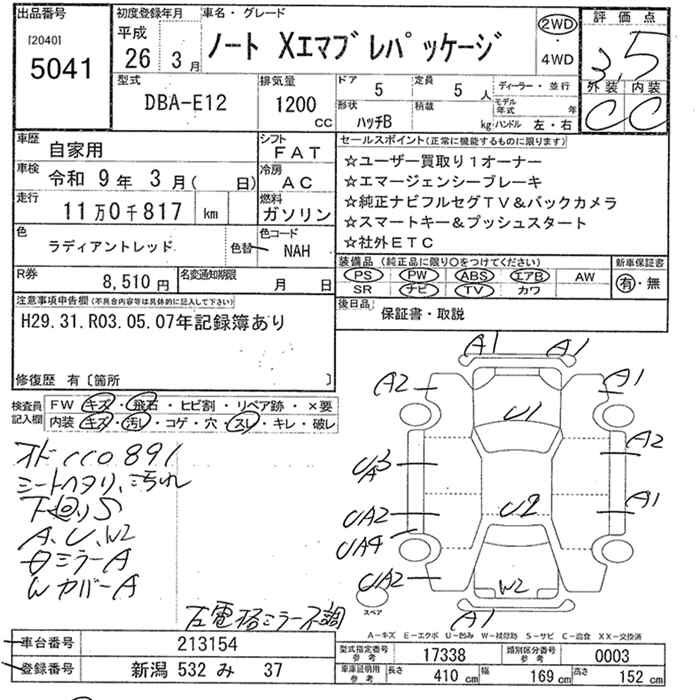 出品番号
[2040]
5041
初度登録年月
平成
26 3月
車名・グレード
ノート XエマブレパッケージV
2WD
・
4WD
評価点
3.5
外装 内装
C C
型式
DBA-E12
排気量
1200
CC
ドア
5
定員
5人
ディーラー・並行
形状
ハッチB
積載
kg
モデル年式 年
ハンドル 左・右
車歴
自家用
シフト
FAT
車検
令和 9年 3月( 日)
冷房
AC
走行
11万0千817 km
燃料
ガソリン
色
ラディアントレッド
色替
色コード
NAH
R券
8,510円
名変通知期限
月 日
セールスポイント(正常に機能するものに限ります)
☆ユーザー買取り1オーナー
☆エマージェンシーブレーキ
☆純正ナビフルセグTV&バックカメラ
☆スマートキー&プッシュスタート
☆社外ETC
装備品(純正品に限り○をつけてください)
PS PW ABS エアB AW
SR ナビ TV カワ
新車保証書
有・無
後日品
保証書・取説
注意事項申告欄(不具合内容等は具体的に記入して下さい)
H29.31.R03.05.07年記録簿あり
修復歴 有〔箇所 〕
検査員記入欄
FW キズ・飛石・ヒビ割・リペア跡・×要
内装 キズ・汚レ・コゲ・穴・スレ・キレ・破レ
オドCC0891
シートヘタリ、汚れ
下廻りS
A、U、W2
ミラーA
WカバーA
左電格ミラー不調
A1 A1
A2 A1
U1
UA3 A2
UA2 U2 A1
UA4
UA2 W2
A1
スペア
A-キズ E-エクボ U-凹み W-補修跡 S-サビ C-腐食 XX-交換済
車台番号
213154
登録番号
新潟 532 み 37
型式指定番号
参考
17338
類別区分番号
参考
0003
車庫証明用
参考
長さ 410cm 幅 169cm 高さ 152cm